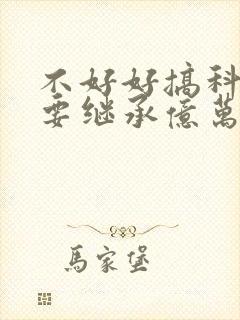 不好好搞科
要继承億萬
馬家堡